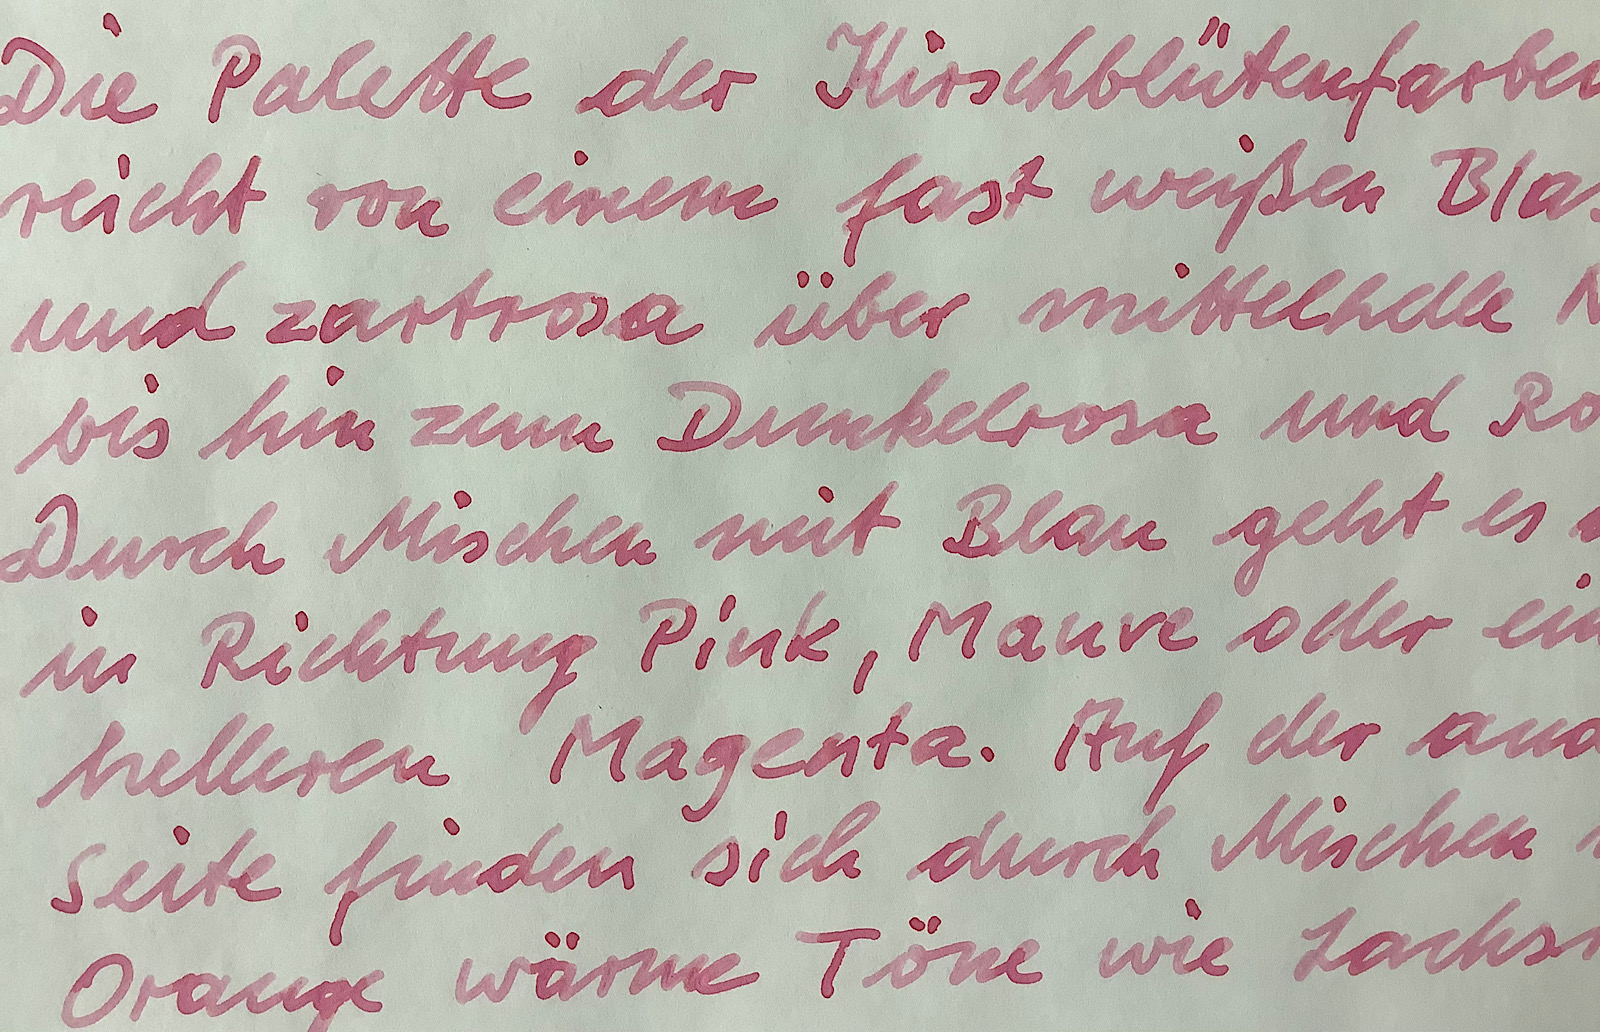 Die Palette der Kirschblütenfarben
reicht von einem fast weißen
und zartrosa über mittelhelle
bis hin zum Dunkelrosa und
Durch Mischen mit Blau geht es
in Richtung Pink, Mauve oder
helleren Magenta. Auf der
Seite finden sich durch Mischen
Orange wärme Töne wie